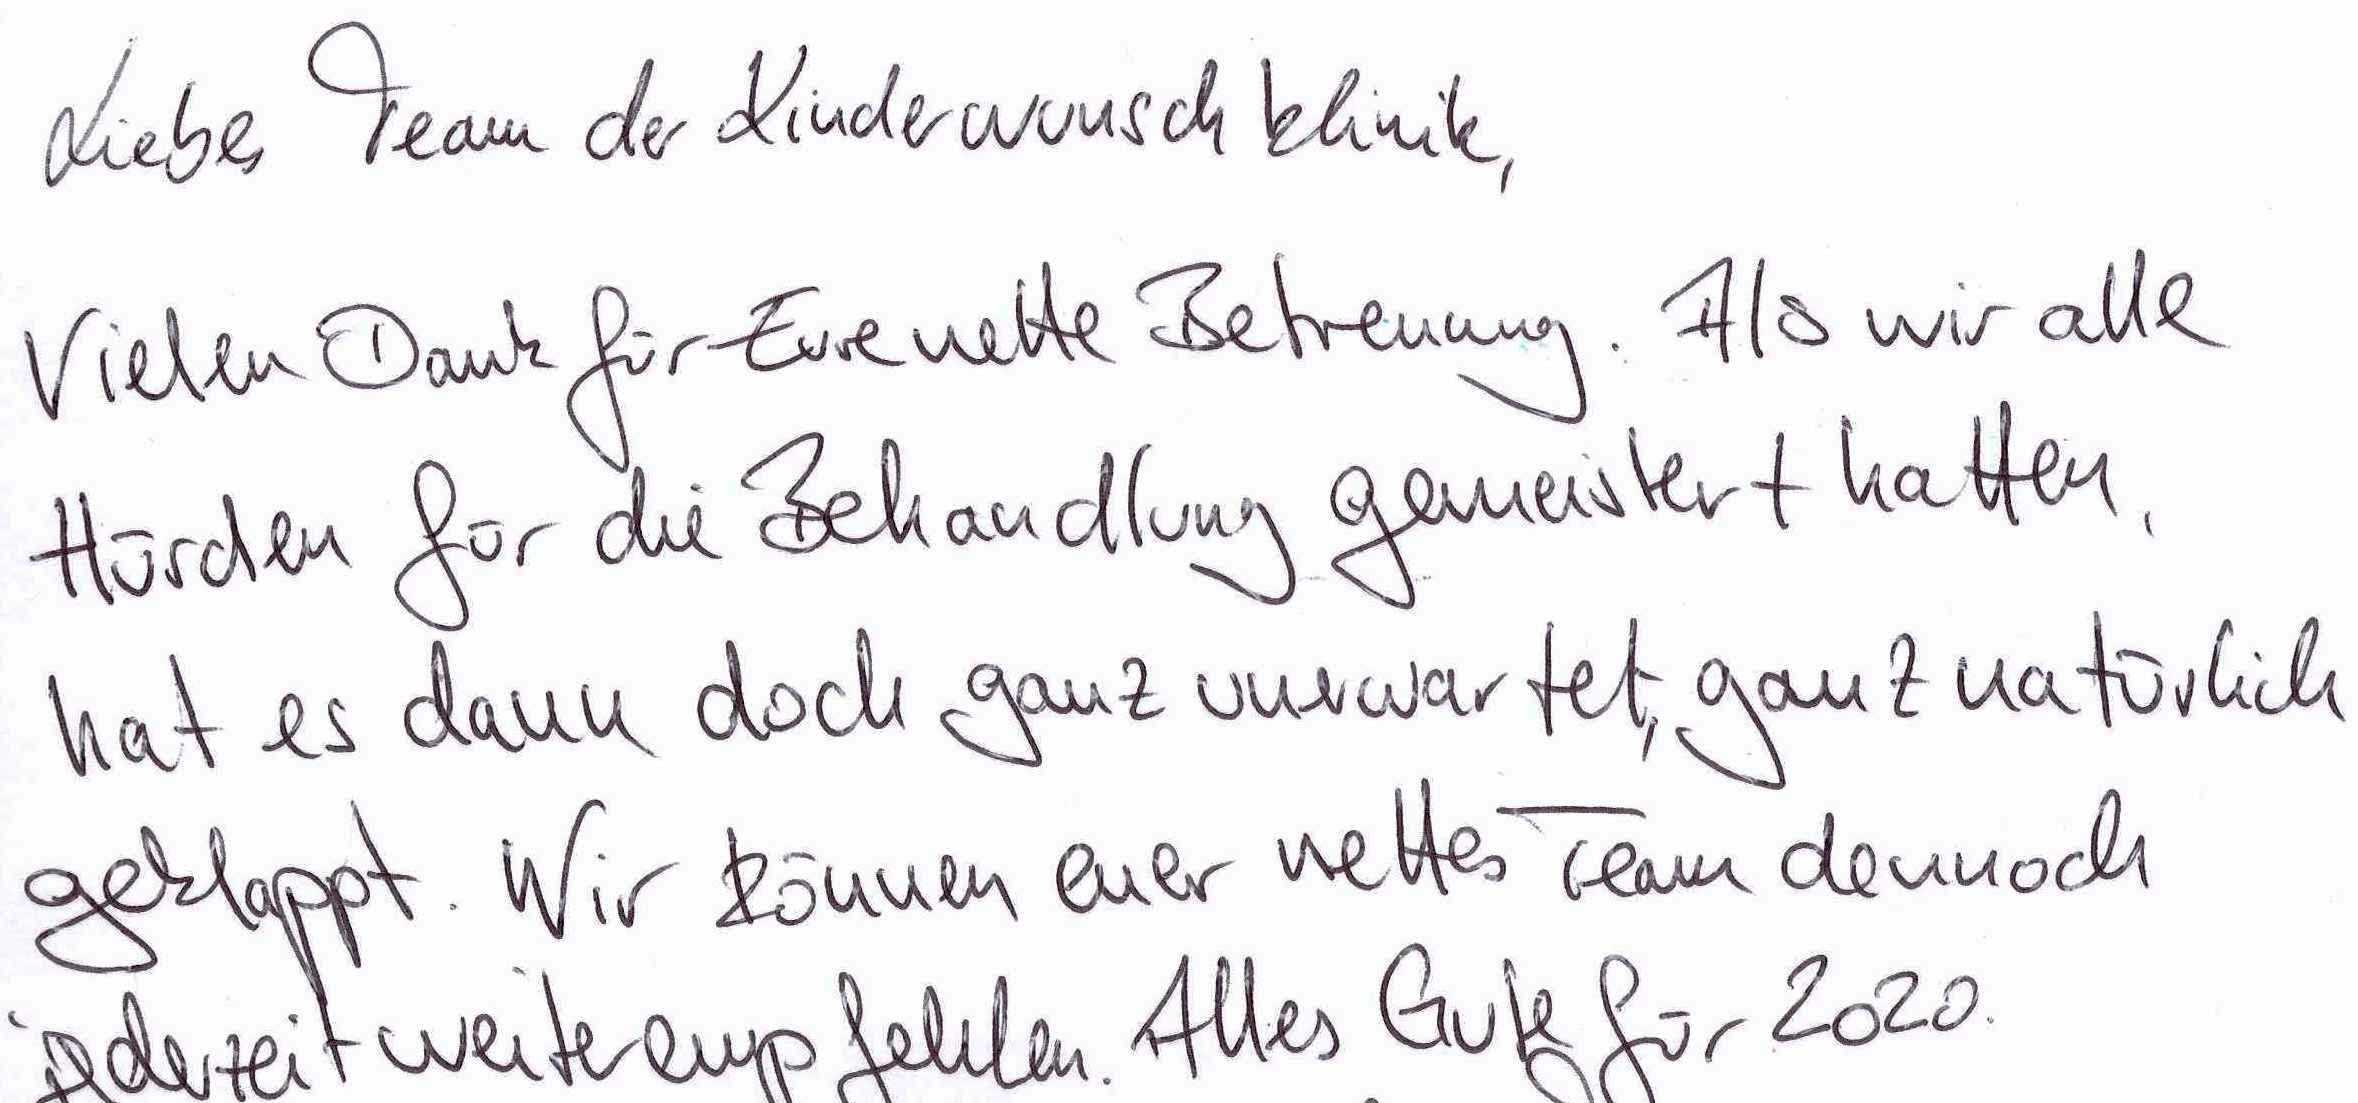 Liebes Team der Kinderwunschklinik,
Vielen Dank für Eure nette Betreuung. Als wir alle
Hürden für die Behandlung gemeistert hatten,
hat es dann doch ganz unerwartet, ganz natürlich
geklappt. Wir können euer nettes Team dennoch
jederzeit weiterempfehlen. Alles Gute für 2020.